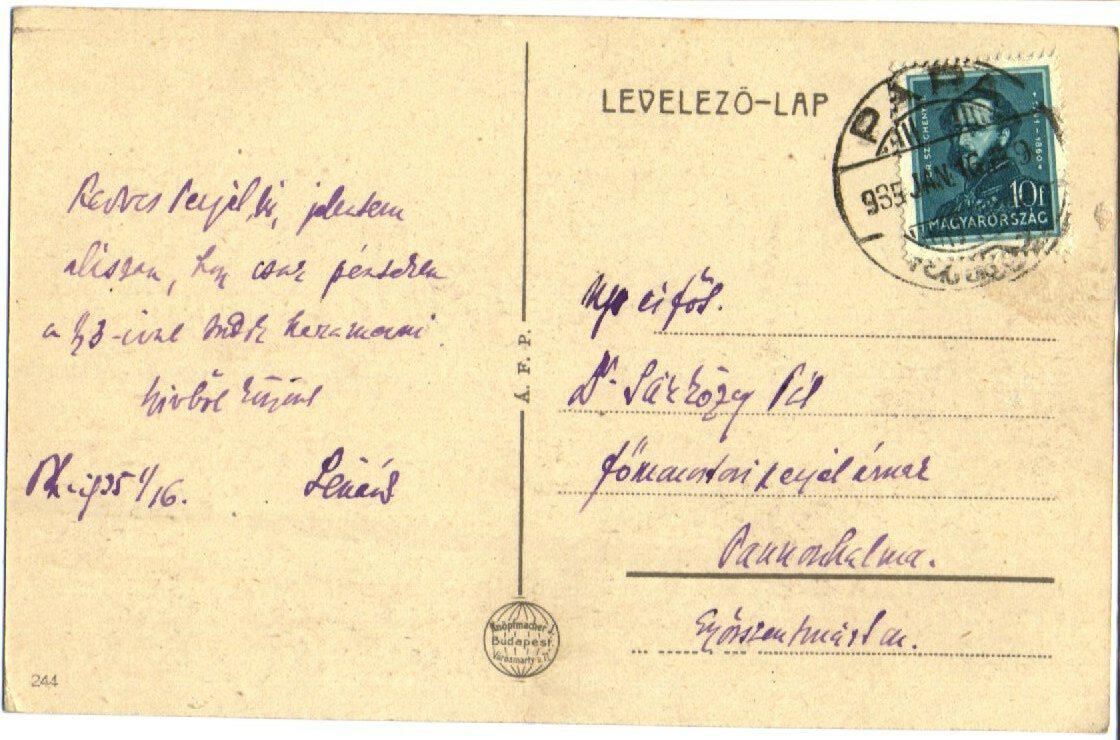 LEVELEZŐ-LAP
PÁPA
935 JAN. 16.
SZÉCHENYI
-1860
10f
MAGYARORSZÁG
Kedves Perjel úr, jelentem
alásan, hogy csak pénteken
a ½3-ival tudok hazamenni.
Szívből köszönt
935 1/16.
Lénárd
Ngs és főt.
Dr. Sárközy Pál
főmonostori perjel úrnak
Pannonhalma.
Győrszentmárton.
Á. F. P.
Knöpfmacher
Budapest
Vörösmarty u.
244